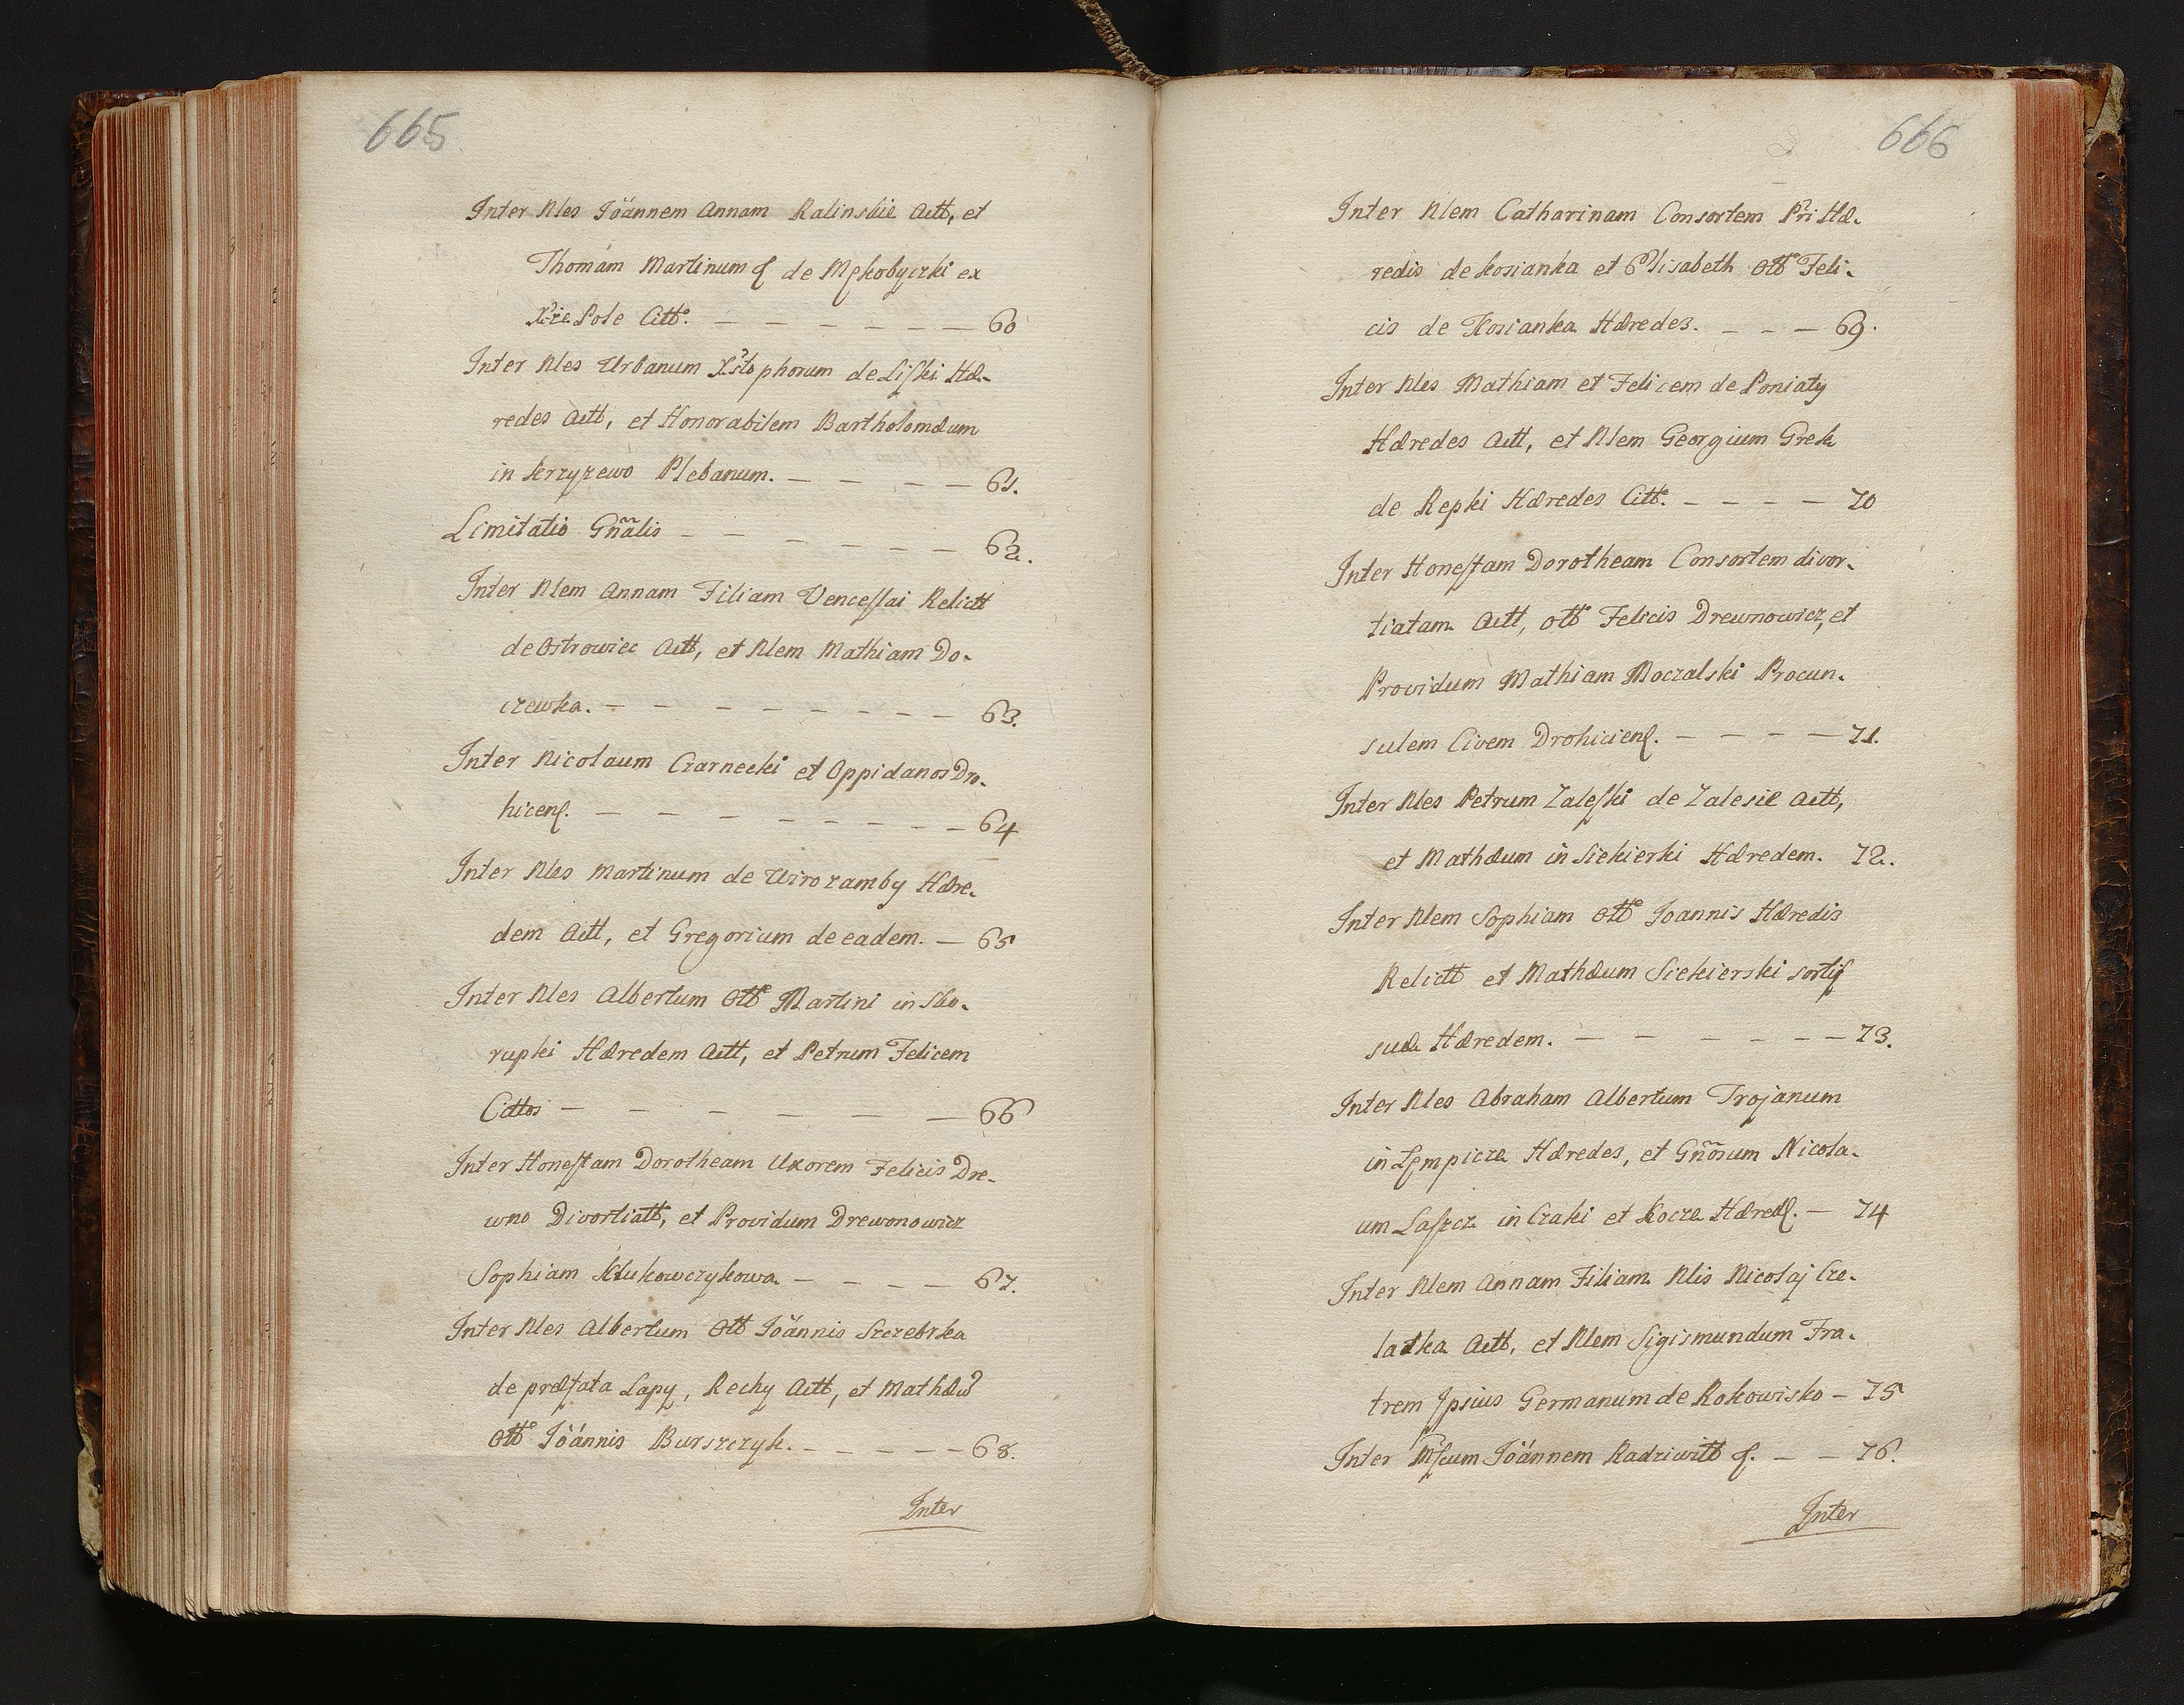 665
Inter Nles Joannem Annam Kalinskie Actt, et
Thomam Martinum de Mękobyczki ex
Xże Pole Citt. — — — — — — 60
Inter Nles Urbanum Xstophorum de Liski Hæ-
redes Actt, et Honorabilem Bartholomæum
in Skrzyszewo Plebanum. — — — — 61.
Limitatio Gñalis — — — — — — 62.
Inter Nlem Annam Filiam Venceslai Relictt
de Ostrowiec Actt, et Nlem Mathiam Do-
czewka. — — — — — — — — 63.
Inter Nicolaum Czarnecki et Oppidanos Dro-
hicens. — — — — — — — — 64
Inter Nles Martinum de Wirozamby Hære-
dem Actt, et Gregorium de eadem. — 65
Inter Nles Albertum Ott Martini in Sko-
rupki Hæredem Actt, et Petrum Felicem
Cittos — — — — — — 66
Inter Honestam Dorotheam Uxorem Felicis Dre-
wno Divortiatt, et Providum Drewonowicz
Sophiam Klukowczykowa — — — — 67.
Inter Nles Albertum Ott Joannis Szczebrka
de præfata Lapy, Rechy Actt, et Mathæu
Ott Joannis Burszczyk. — — — — — 68.
Inter
666
Inter Nlem Catharinam Consortem Pri Hæ-
redis de Kosianka et Elisabeth Ott Feli-
cis de Kosianka Hæredes. — — — 69.
Inter Nles Mathiam et Felicem de Poniaty
Hæredes Actt, et Nlem Georgium Grek
de Repki Hæredes Citt. — — — — 70
Inter Honestam Dorotheam Consortem divor-
tiatam Actt, Ott Felicis Drewnowicz, et
Providum Mathiam Moczalski Procun-
sulem Civem Drohiciens. — — — — 71.
Inter Nles Petrum Zaleski de Zalesie Actt,
et Mathæum in Siekierki Hæredem. 72.
Inter Nlem Sophiam Ott Joannis Hæredis
Relictt et Mathæum Siekierski sortis
suæ Hæredem. — — — — — — 73.
Inter Nles Abraham Albertum Trojanum
in Lempicze Hæredes, et Gñosum Nicola-
um Laszcz in Czaki et Kocza Hæred. — 74
Inter Nlem Annam Filiam Nlis Nicolaj Cze-
latka Actt, et Nlem Sigismundum Fra-
trem Ipsius Germanum de Rokowisko — 75
Inter Mscum Joannem Radziwill — — 76.
Inter